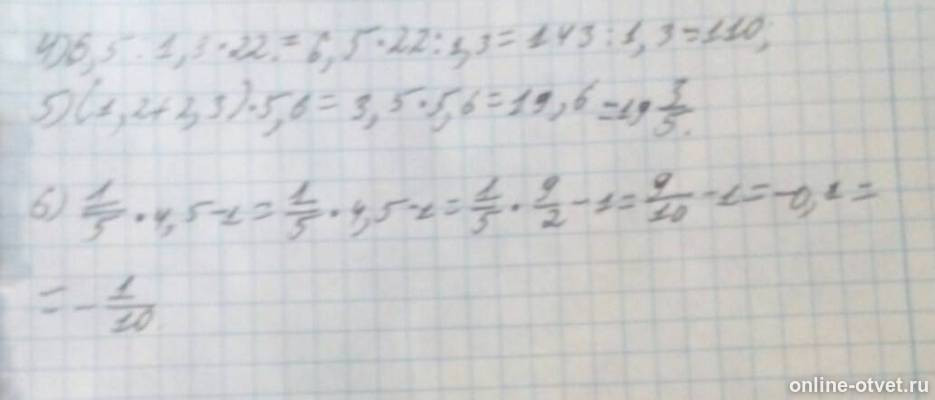 4) 6,5 : 1,3 · 22 = 6,5 · 22 : 1,3 = 143 : 1,3 = 110;
5) (1,2+2,3) · 5,6 = 3,5 · 5,6 = 19,6 = 19 3/5.
6) 1/5 · 4,5 - 1 = 1/5 · 4,5 - 1 = 1/5 · 9/2 - 1 = 9/10 - 1 = -0,1 =
= - 1/10
online-otvet.ru